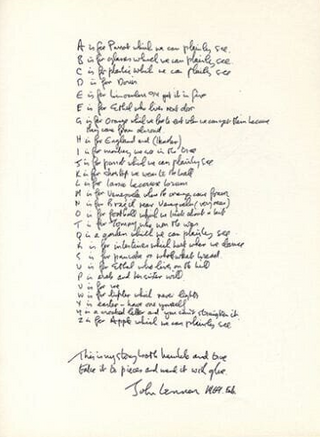 A is for Parrot which we can plainly see
B is for glasses which we can plainly see
C is for plastic which we can plainly see
D is for Doris
E is for
F is for Ethel who lives next door
G is for orange which we love to eat when we can get them because
they come from abroad
H is for England and (Heather)
I is for monkey we see in the tree
J is for parrot which we can plainly see
K is for shoetop we wear to the ball
L is for because brown
M is for Venezuela where the oranges come from
N is for Brazil near Venezuela (very near)
O is for football which we kick about a bit
T is for Tommy who won the war
Q is a garden which we can plainly see
R is for intestines which hurt when we dance
S is for pancake or whole wheat bread
U is for Ethel who lives on the hill
P is arab and her sister will
V is for me
W is for lighter which never lights
X is easter - have one yourself
Y is a crooked letter and you can't straighten it
Z is for Apple which we can plainly see
This is my story both humble and true
take it to pieces and mend it with glue
John Lennon 1969. Feb.